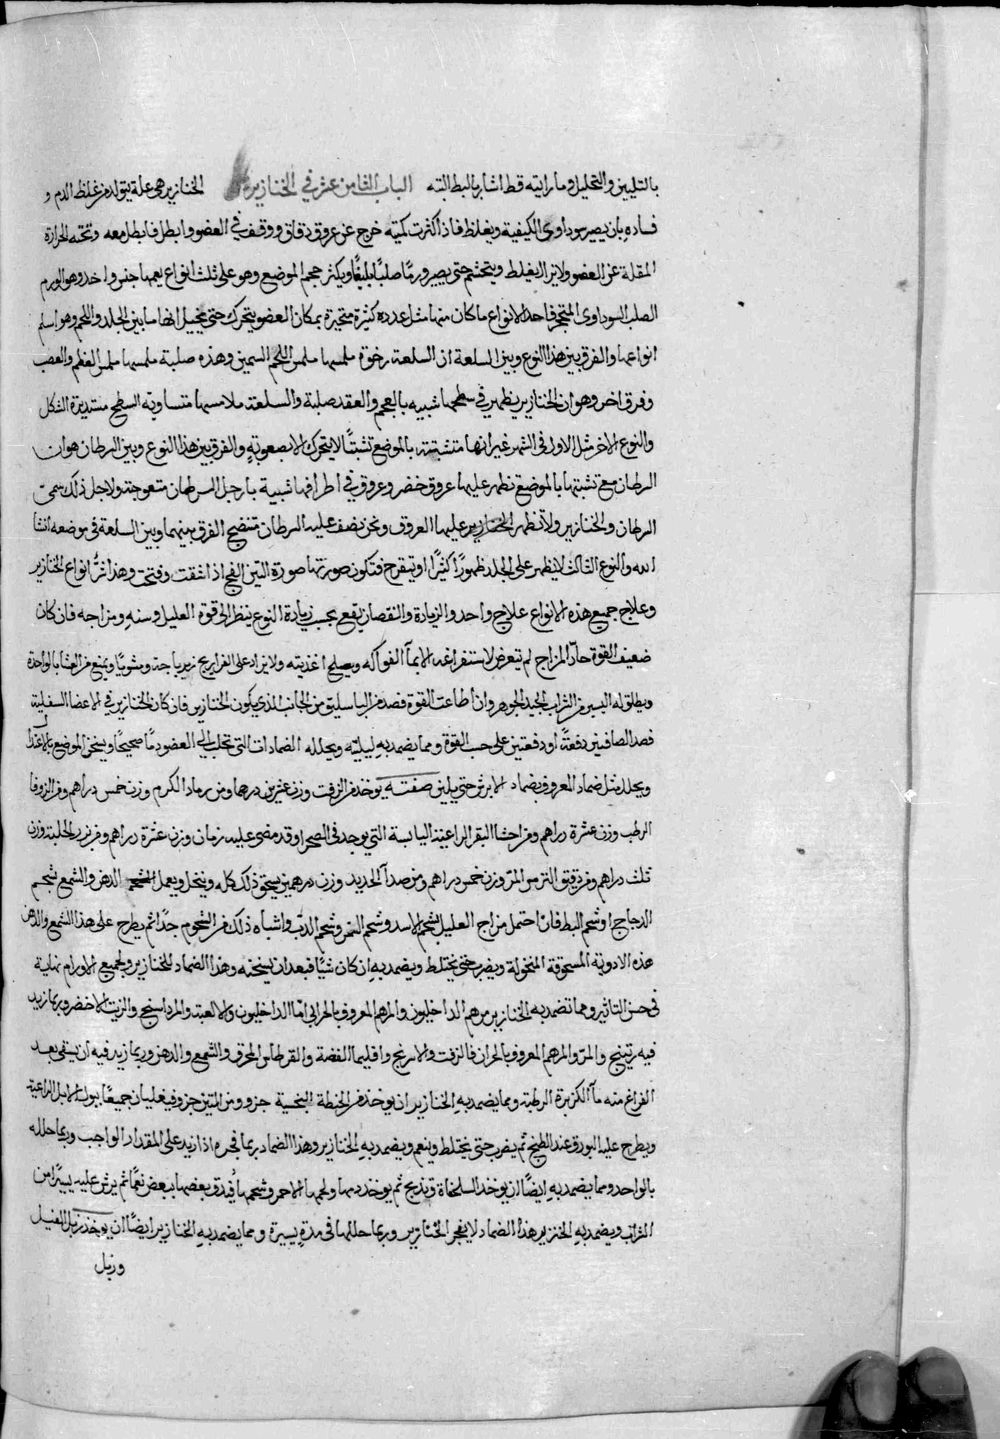 بالتليين والتحليل وما رايته قط اشار بالبط البته الباب الثامن عشر في الخنازير الخنازير هي علة يتولد من غلظ الدم و
فساده بان يصير سوداوى الكيفية ويغلظ فاذا كثرت كميته خرج عن عروق دقاق ووقف في العضو وابطل فابطل معه وتخنه الحرارة
المقلة عن العضو ولا يزال يغلظ ويتحشم حتى يصير ورمًا صلبًا بليغًا ويكثر حجم الموضع وهو على ثلث انواع يعمها جنس واحد وهو الورم
الصلب السوداوى المتحجر فاحد الانواع ما كان منها مثل عدد كثيرة متحيزة بمكان العضو يتحرك حتى يخيل انها ما بين الجلد واللحم وهو اسلم
انواعها والفرق بين هذا النوع وبين السلعة ان السلعة رخوة ملمسها ملمس اللحم السمين وهذه صلبة ملمسها ملمس العظم والعصب
وفرق اخر وهو ان الخنازير يظهر في سطحها شبيه بالعجر والعقد صلبة والسلعة ملامسها متساوية السطح مستديرة الشكل
والنوع الاخر مثل الاول في الشهر غير انها متشبثة بالموضع تشبثًا لا يتحرك الا بصعوبة والفرق بين هذا النوع وبين السرطان هو ان
السرطان مع تشبثها بالموضع تظهر عليها عروق خضر وعروق في اطرافها شبيهة بارجل السرطان متعوجة ولاجل ذلك سمى
السرطان والخنازير ولا تظهر الخنازير عليها العروق ونحن نصف علية السرطان متضح الفرق بينهما وبين السلعة في موضعه انشا
الله والنوع الثالث لا يظهر على الجلد ظهورًا كثيرًا او يتقرح فتكون صورتها صورة التين الفج اذا شقت وفتحت وهذا شر انواع الخنازير
وعلاج جميع هذه الانواع علاج واحد والزيادة والنقصان يقع بحسب زيادة النوع ينظر الى قوة العليل وسنه ومزاجه فان كان
ضعيف القوة حاد المزاج لم تتعرض لاستفراغه الا بماء الفواكه ويصلح اغذيته ولا يزاد على الفراريج زيرباجة ومشويًا ويمنع من العشا بالواحدة
ويطلق له اليسير من الشراب الجيد الجوهر وان اطاعت القوة فصد من الباسليق من الجانب الذي يكون الخنازير فان كان الخنازير في الاعضا السفلية
فصد الصافنين دفعة او دفعتين على حسب القوة ومما يضمد به ليلينه ويحلله الضمادات التي تجلب الي العضو دمًا صحيحًا ويسخن الموضع بالاعتدال
ويحلل مثل ضماد المعروف بضماد الابرش حتى يلين صفته يوخذ من الزفت وزن عشرين درهما ومن رماد الكرم وزن خمس دراهم ومن الزوفا
الرطب وزن عشرة دراهم ومن اخثا البقر الراعية اليابسة التي يوجد في الصحرا وقد مضى عليه زمان وزن عشرة دراهم ومن بزر الحلبة وزن
ثلث دراهم ومن دقيق الترمس المر وزن خمس دراهم ومن صدأ الحديد وزن درهمين يسحق ذلك كله وينخل ويعمل الدهن والشمع شحم
الدجاج او شحم البط فان احتمل مزاج العليل شحم الاسد وشحم النمر وشحم الدب واشباه ذلك من الشحوم جدًا ثم يطرح على هذا الشمع والدهن
هذه الادوية المسحوقة المنخولة ويضرب حتى يختلط ويضمد به ان كان شيًا فبعد ان يسخنه وهذا الضماد للخنازير ولجميع الاورام نهاية
في حسن التاثير ومما تضمد به الخنازير مرهم الداخليون والمرهم المعروف بالحراني اما الداخليون والالعبة والمرداسنج والزيت الاخضر وربما زيد
فيه ريتينج والمر والمرهم المعروف بالحران فالزفت والاسرنج واقليميا الفضة والقرطاس المحرق والشمع والدهن وربما زيد فيه ان يسقى بعد
الفراغ منه مآ الكزبرة الرطبة ومما يضمد به الخنازير ان يوخذ من الحنطة جزو ومن التين جزو فيغليان جميعًا ببول الابل الراعية
ويطرح عليه البورق عند الطبخ ثم يضرب حتى يختلط وينعم ويضمد به الخنازير وهذا الضماد ربما فجره اذا زيد على المقدار الواجب وربما حلله
بالواحد ومما يضمد به ايضًا ان يوخذ السلحفاة وتذبح ثم يوخذ دمها ولحمها الاحمر وشحمها فيدق بعضها ببعض نعمًا ثم يرش عليه يسيرًا من
الشراب ويضمد به الخنزير هذا الضماد لا يفجر الخنازير وربما حللها في مدة يسيرة ومما يضمد به الخنازير ايضًا ان يوخذ زبل الفيل
وزبل